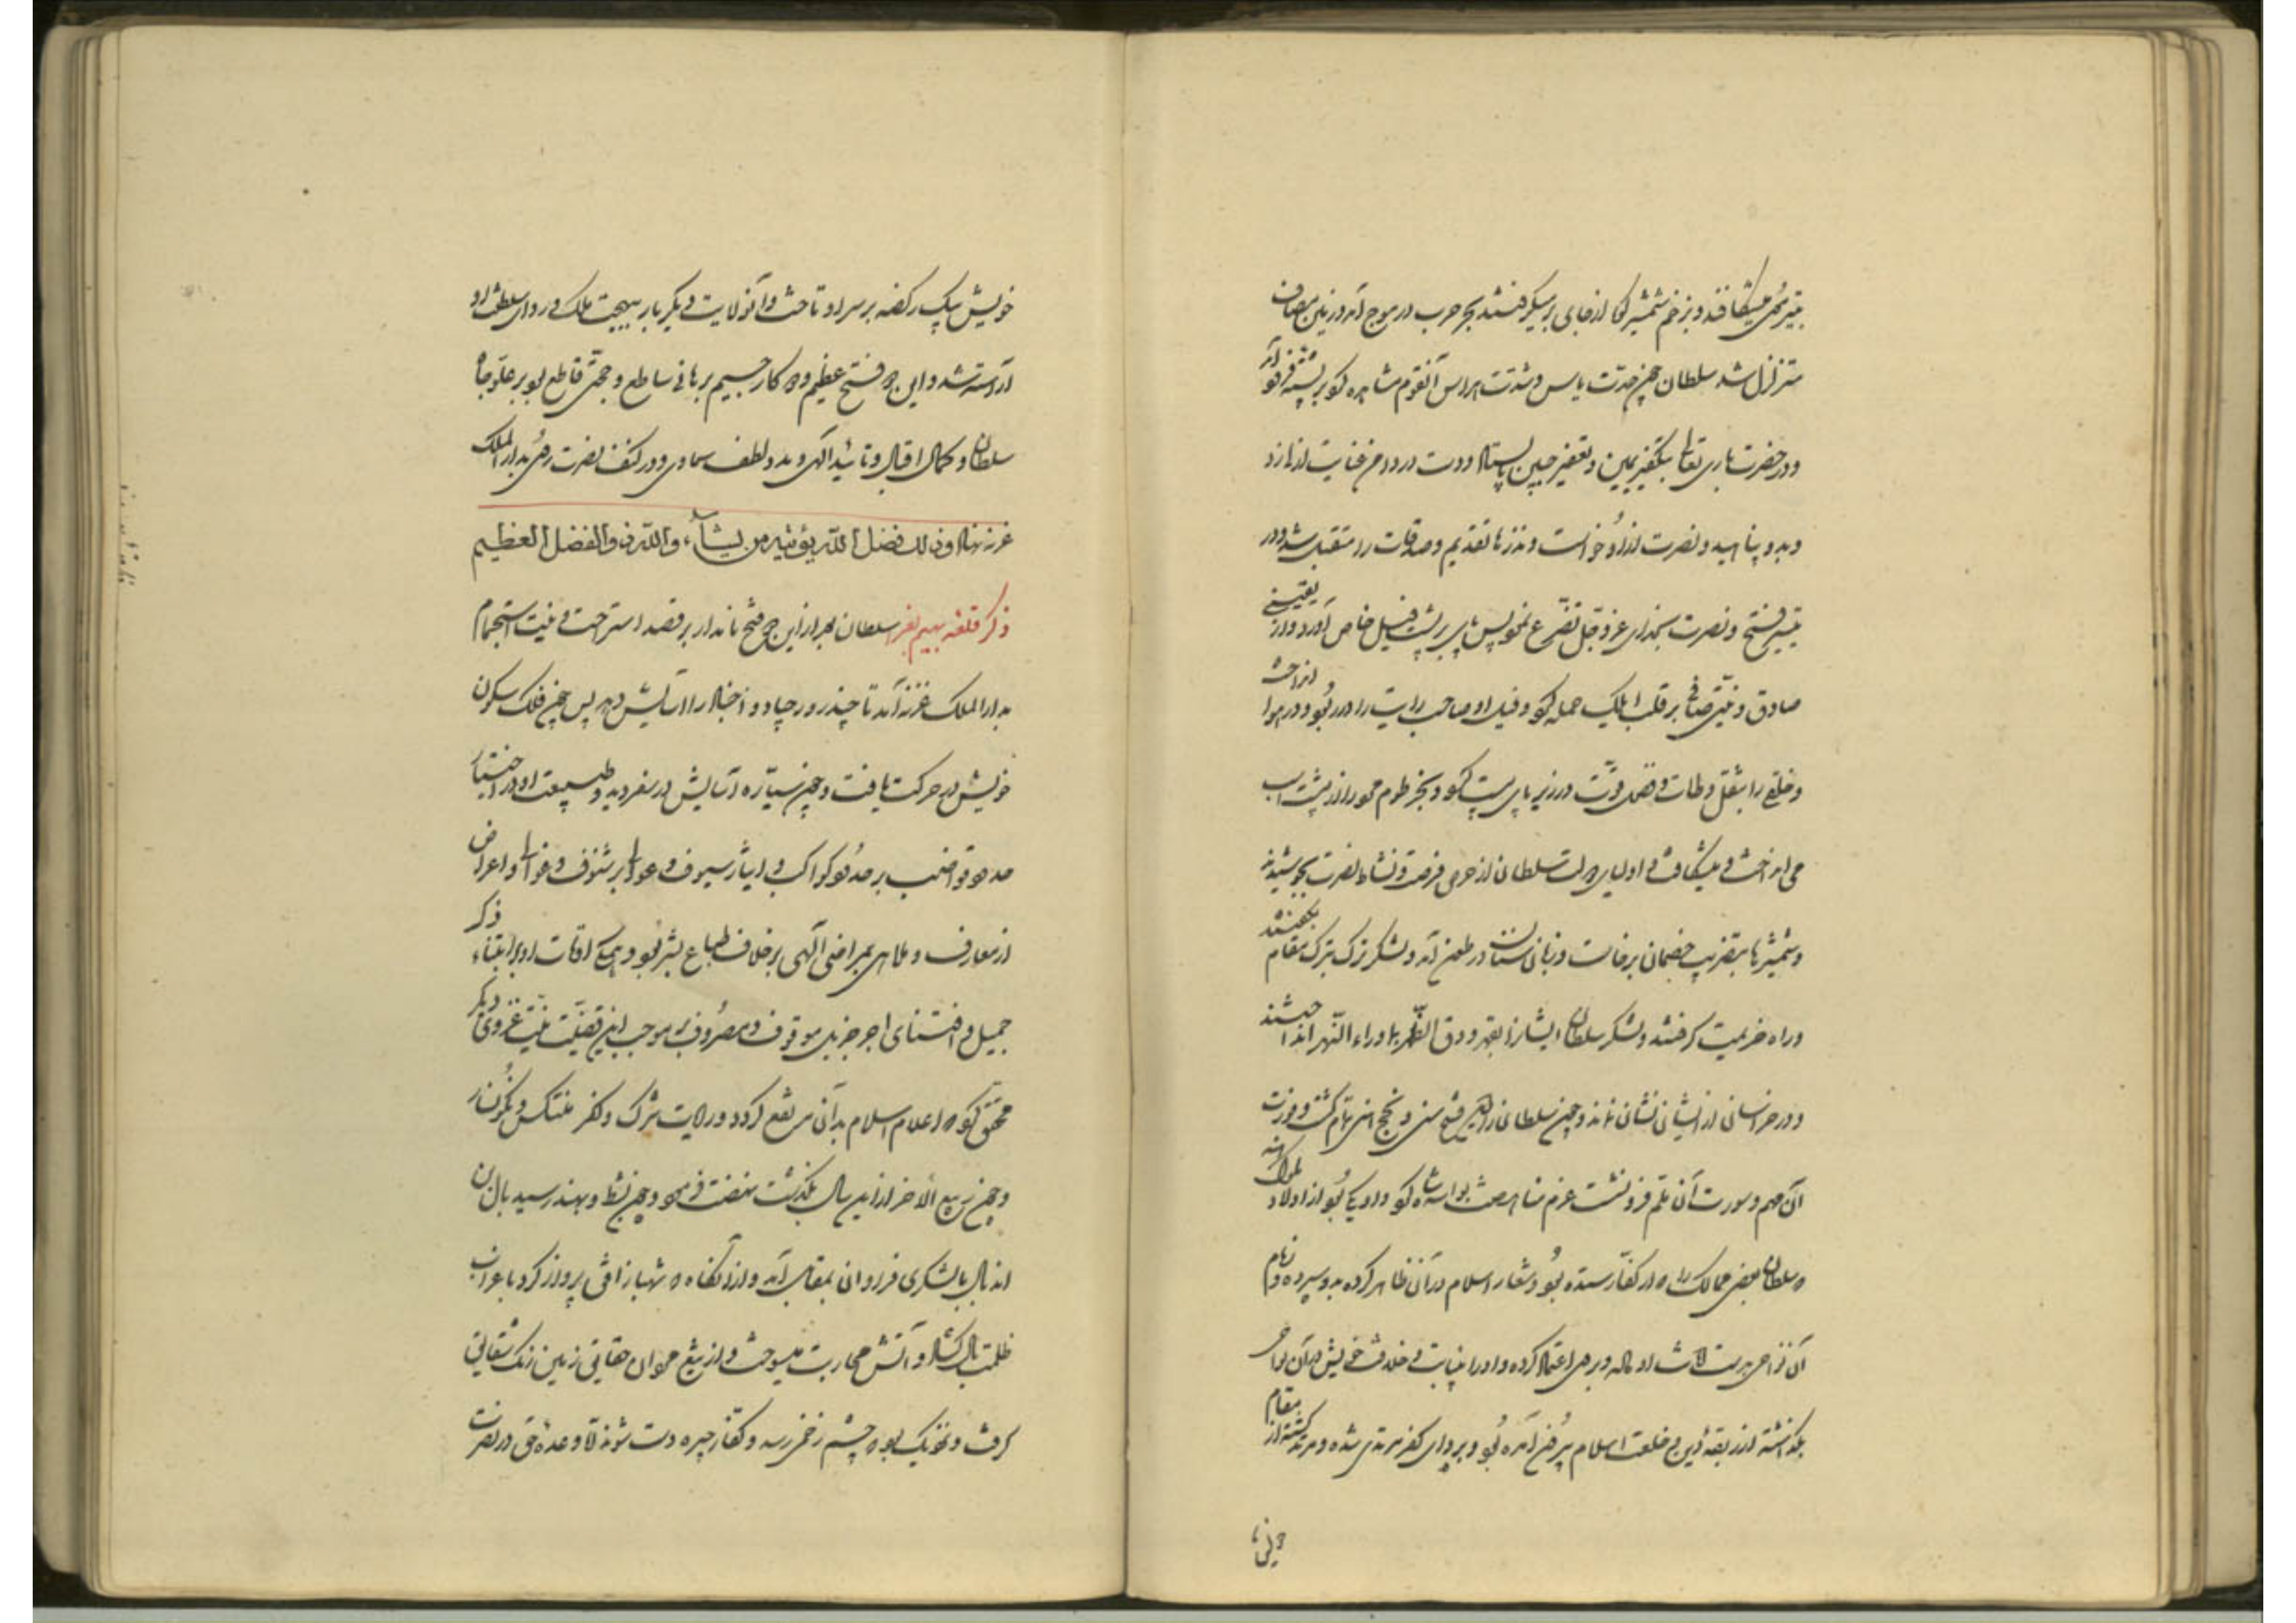 بتیر موی میشکافند و بزخم شمشیر کوه از جای بر میگرفتند بحر حرب در موج آمد و زمین مصاف
متزلزل شد سلطان چون حدّت باس و شدّت مراس آن قوم مشاهده کرد بر پشته فرود آمد
و در حضرت باری تعالی بتعفیر جبین بایستاد و دست در دامن عنایت ازلی زد
و بدو پناهید و نصرت ازو خواست و نذرها تقدیم و صدقات را متقبل شد و در
تیسیر فتح و نصرت بخدای عزّ و جل تضرّع نمود پس پای بر پشت فیل خاص آورد و از یقینی
صادق و نیتی صافی بر قلب ایلک حمله کرد و فیل او صاحب رایت را در ربود و در هوا انداخت
و خلقی را بثقل وطات و فضل قوّت در زیر پای پست کرد و بخرطوم مرد را از پشت اسب
می انداخت و میشکافت و اولیای دولت سلطان از حرص فرصت و نشاط نصرت بجوشیدند
و شمشیرها بتضریب خصمان برخاست و زبان سنان در طعن آمد و لشکر ترک بترک مقام بگفتند
و راه هزیمت گرفتند و لشکر سلطان ایشانرا بقهر و دق الظهر بماوراء النّهر انداختند
و در خراسان از ایشان نشان نماند و چون سلطان را این فتح سنی و نجح هنی تمام گشت و فورت
آن مهم و سورت آن ملم فرو نشست عزم مناهضت نواسه شاه کرد و او یکی بود از اولاد ملوک هند
که سلطان بعضی ممالک را که از کفّار ستده بود و شعار اسلام در آن ظاهر کرده بدو سپرده و زمام
آن نواحی بدست او داده و بر وی اعتماد کرده و او را بنیابت و خلافت خویش در آن نواحی
بگذاشته از ربقۀ دین و خلعت اسلام بیرون آمده بود و بردای کفر مرتدی شده و مرتد گشته از مقام
خویش بیک رکضه بر سر او تاخت و آن ولایت دیگر بار ببهجت ملک و روای سلطنت او
آراسته شد و این دو فتح عظیم و دو کار جسیم برهانی ساطع و حجّتی قاطع بود بر علوّ جاه
سلطان و کمال اقبال و تائید الهی و مدد لطف سماوی و در کنف نصرت روی بدار الملک
غزنه نهاد و ذلک فضل اللّه یؤتیه من یشآء واللّه ذو الفضل العظیم
ذکر قلعۀ بهیم نغر سلطان بعد از این دو فتح نامدار بر قصد استراحت و نیت استجمام
بدار الملک غزنه آمد تا چند روز جیاد و اجناد را آسایش دهد پس چون فلک سکون
خویش در حرکت یافت و چون سیّاره آسایش در سفر دید و طبیعت او در اختیار
حدود قواضب بر خدود کواعب و ایثار سیوف و عوالی بر شنوف و غوالی و اعراض
از معارف و ملاهی بمراضی الهی بر خلاف طباع بشر بود و همگی اوقات او بر ابتناء ذکر
جمیل و اقتنای اجر جزیل موقوف و مصروف بر موجب این قضیّت نیّت غزوی دیگر
محقق کرد که اعلام اسلام بدان مرتفع گردد و رایت شرک و کفر منتکس و نگونسار
و چون ربیع الآخر از این سال بگذشت نهضت فرمود و چون بشط ویهند رسید بال بن
اندبال بالشکری فراوان بمقابل آمد و از آنگاه که شهباز افق پرواز کرد تا غراب
ظلمت بال گشاد آتش محاربت میسوخت و از تیغ چون حقایق زمین رنگ شقایق
گرفت و نزدیک بود که چشم زخمی رسد و کفّار چیره دست شوند الّا وعدۀ حق در نصرت